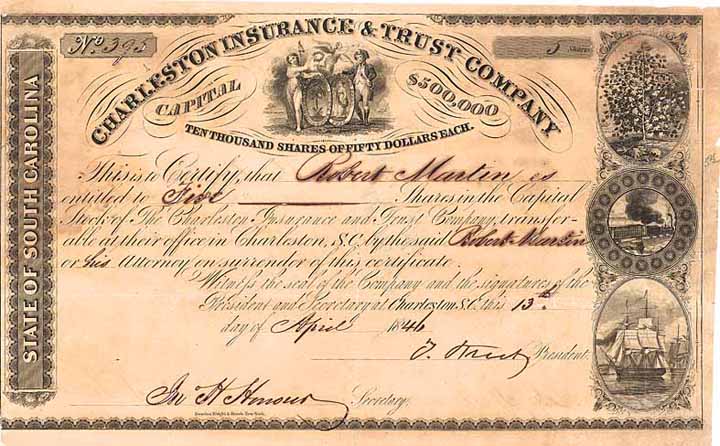 No. 395
5 Shares
CHARLESTON INSURANCE & TRUST COMPANY
CAPITAL $500,000
TEN THOUSAND SHARES OF FIFTY DOLLARS EACH.
STATE OF SOUTH CAROLINA
This is to Certify, that Robert Martin is
entitled to Five Shares in the Capital
Stock of The Charleston Insurance and Trust Company, transfer-
able at their office in Charleston, S.C. by the said Robert Martin
or his Attorney on surrender of this certificate
Witness the seal of the Company and the signatures of the
President and Secretary at Charleston S.C. this 13th
day of April 1846
T. Street President.
Jno H Honour Secretary.